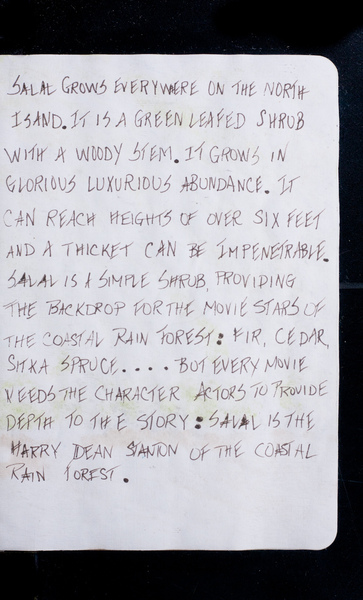 SALAL GROWS EVERYWERE ON THE NORTH
ISAND. IT IS A GREEN LEAFED SHRUB
WITH A WOODY STEM. IT GROWS IN
GLORIOUS LUXURIOUS ABUNDANCE. IT
CAN REACH HEIGHTS OF OVER SIX FEET
AND A THICKET CAN BE IMPENETRABLE.
SALAL IS A SIMPLE SHRUB, PROVIDING
THE BACKDROP FOR THE MOVIE STARS OF
THE COASTAL RAIN FOREST: FIR, CEDAR,
SITKA SPRUCE.... BUT EVERY MOVIE
NEEDS THE CHARACTER ACTORS TO PROVIDE
DEPTH TO THE STORY: SALAL IS THE
HARRY DEAN STANTON OF THE COASTAL
RAIN FOREST.